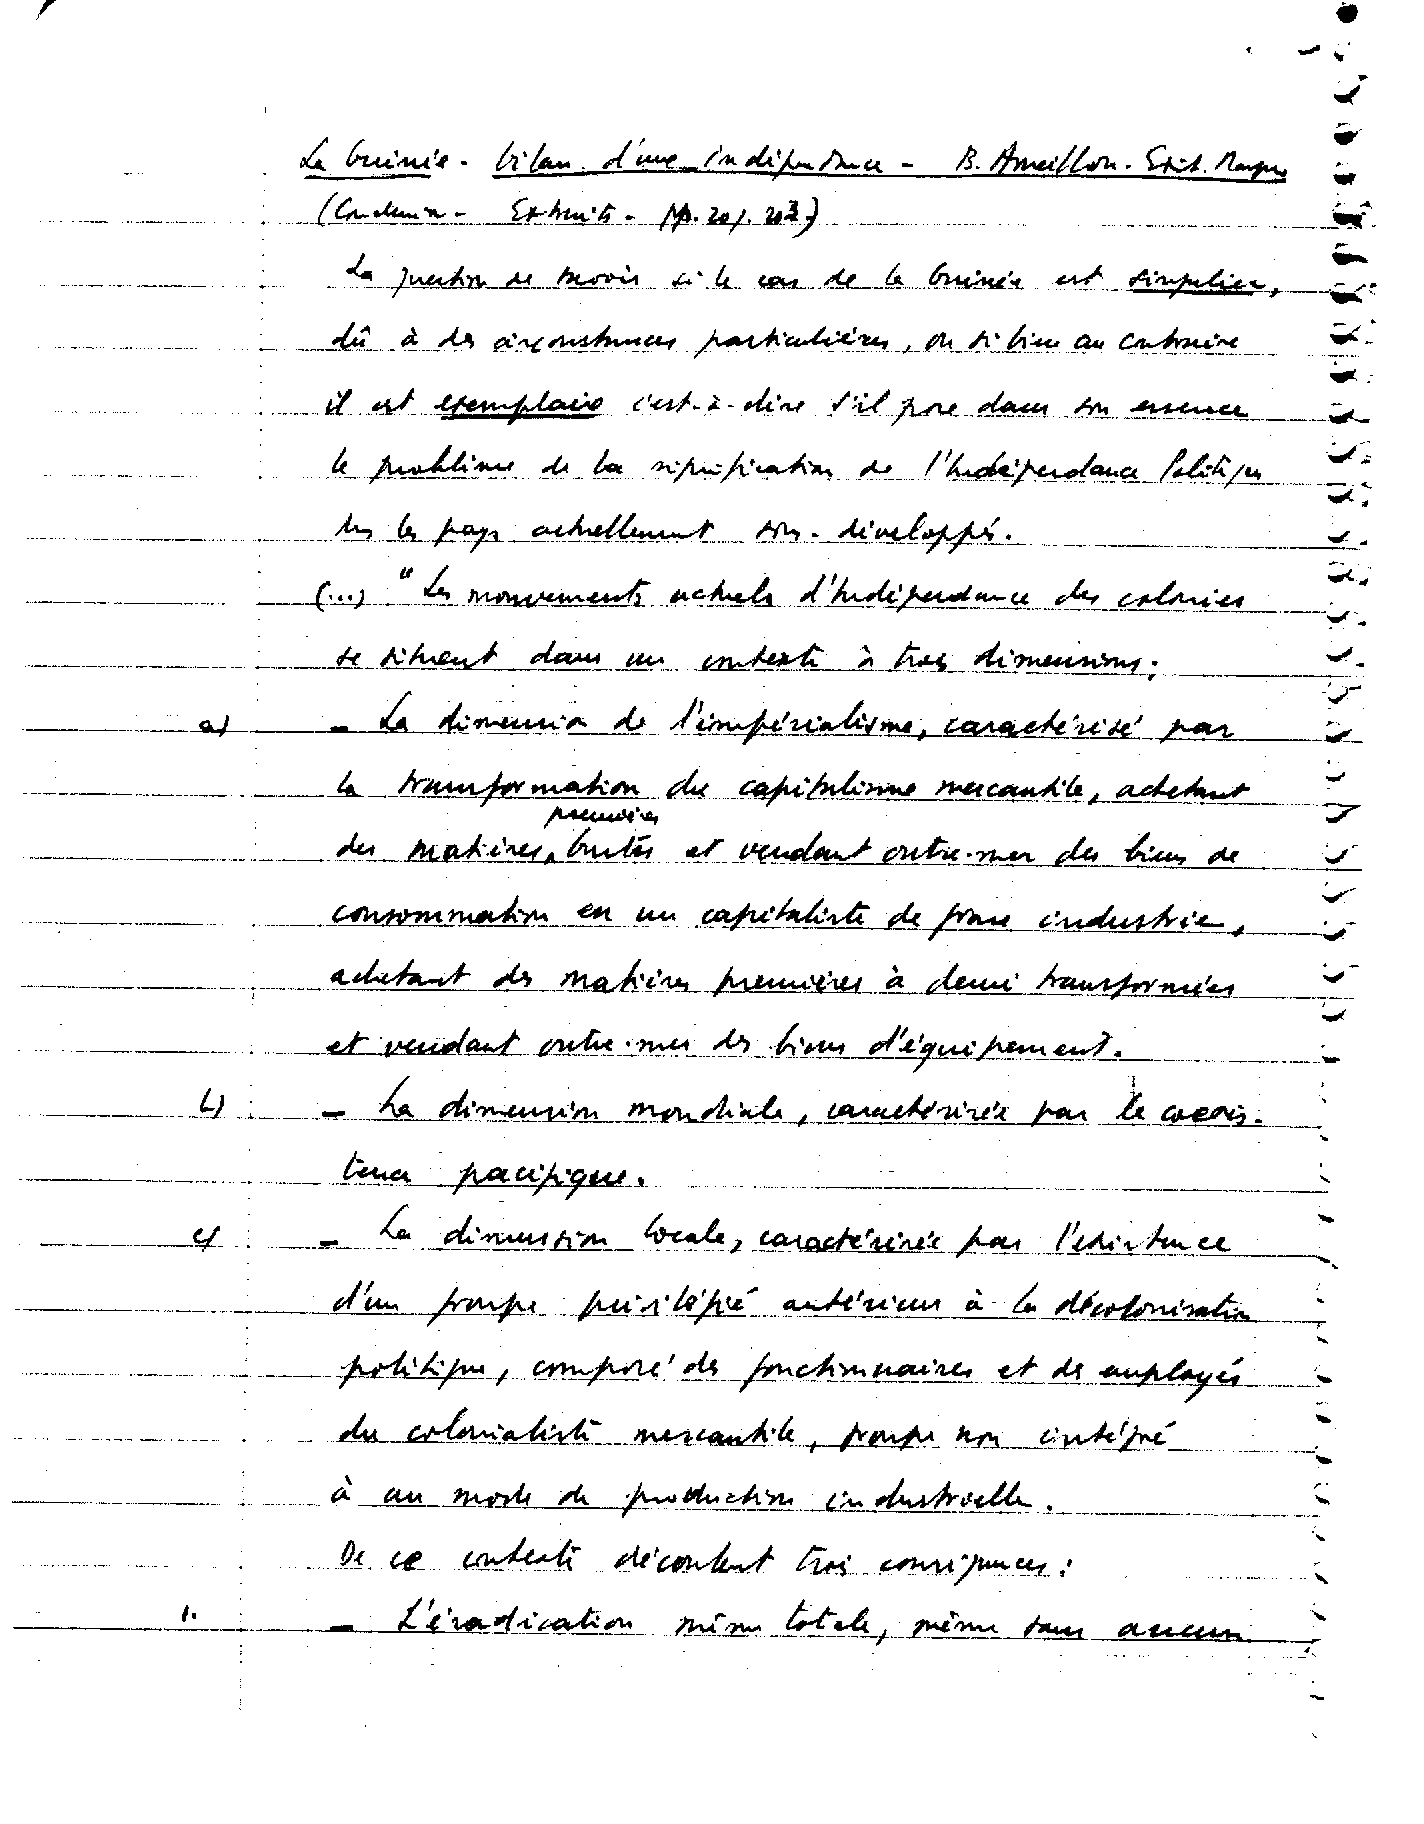 La Guinée - bilan d'une indépendance - B. Ameillon - Edit. Maspero
(Conclusion - Extraits - pp. 201. 203)
La question de savoir si le cas de la Guinée est singulier,
dû à des circonstances particulières, ou si bien au contraire
il est exemplaire c'est-à-dire s'il pose dans son essence
le problème de la signification de l'Indépendance Politique
des les pays actuellement sous-développés.
(...) "Les mouvements actuels d'Indépendance des colonies
se situent dans un contexte à trois dimensions :
a) - La dimension de l'impérialisme, caractérisé par
la transformation du capitalisme mercantile, achetant
premières
des matières, brutes et vendant outre-mer des biens de
consommation en un capitaliste de grosse industrie,
achetant des matières premières à demi transformées
et vendant outre-mer des biens d'équipement.
b) - La dimension mondiale, caractérisée par la coexis-
tence pacifique.
c) - La dimension locale, caractérisée par l'existence
d'un groupe privilégié antérieur à la décolonisation
politique, composé des fonctionnaires et des employés
du colonialiste mercantile, groupe non intégré
à un mode de production industrielle.
De ce contexte découlent trois conséquences :
1. - L'éradication même totale, même sans aucun